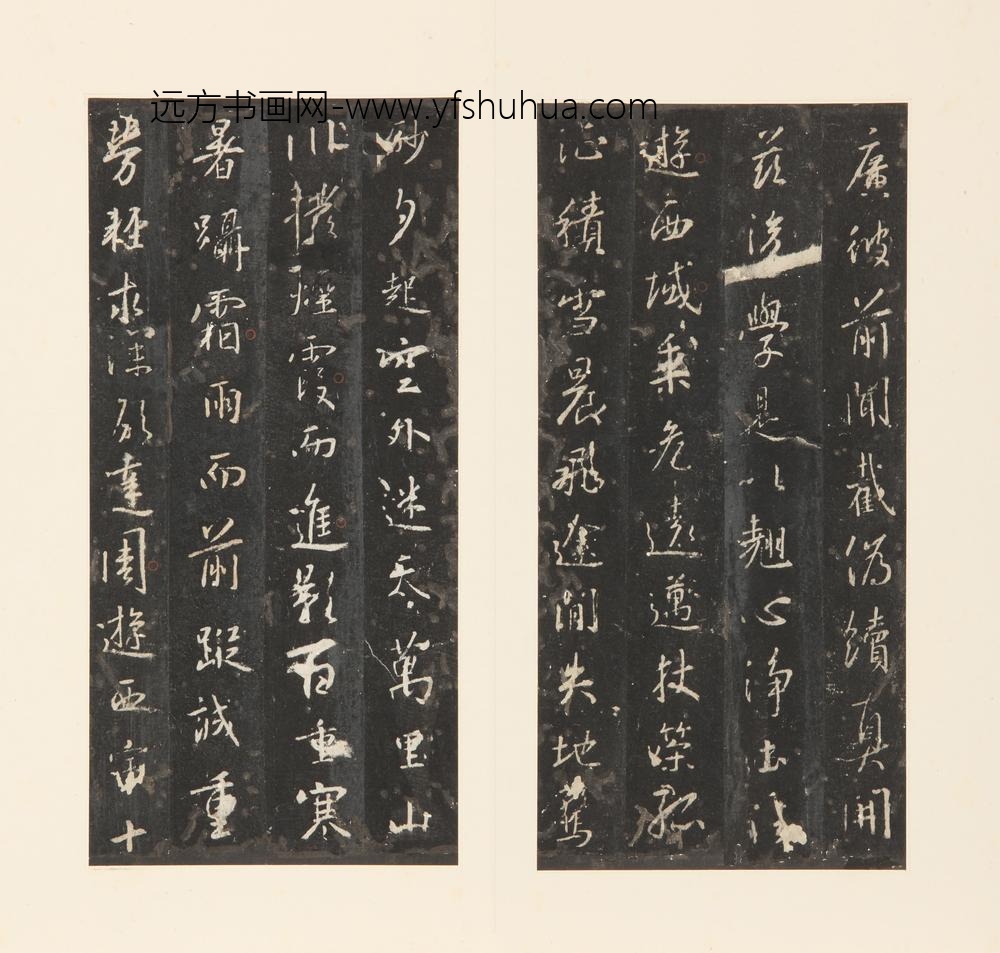 远方书画网-www.yfshuhua.com
廣彼前聞截偽續真開
茲後學是以翹心淨土往
遊西域乘危遠邁杖策孤
征積雪晨飛途閒失地驚
砂夕起空外迷天萬里山
川撥煙霞而進影百重寒
暑躡霜雨而前蹤誠重
勞輕求深願達周遊西宇十